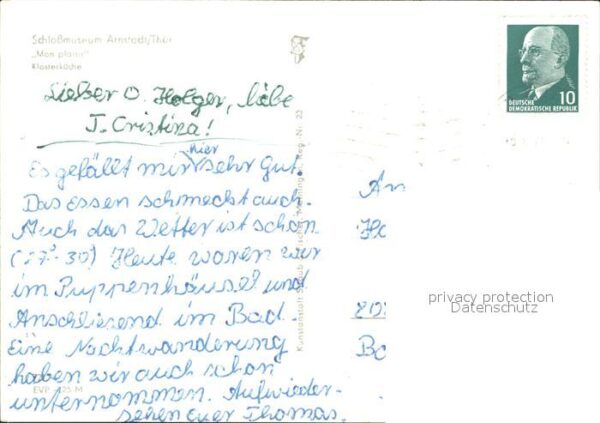 Schloßmuseum Arnstadt/Thür
„Mon plaisir"
Klosterküche
Lieber O. Holger, libe
T. Cristina!
Es gefällt mir hier sehr Gut.
Das essen schmeckt auch.
Auch das Wetter ist schön
(27°-30) Heute waren wir
im Puppenhäusel und
Anschliesend im Bad.
Eine Nachtwanderung
haben wir auch schon
unternommen. Aufwieder-
sehen euer Thomas.
An
Ho
Ba
10
DEUTSCHE
DEMOKRATISCHE REPUBLIK
Kunstanstalt Straub
Reg.-Nr. 22
EVP
M
privacy protection
Datenschutz